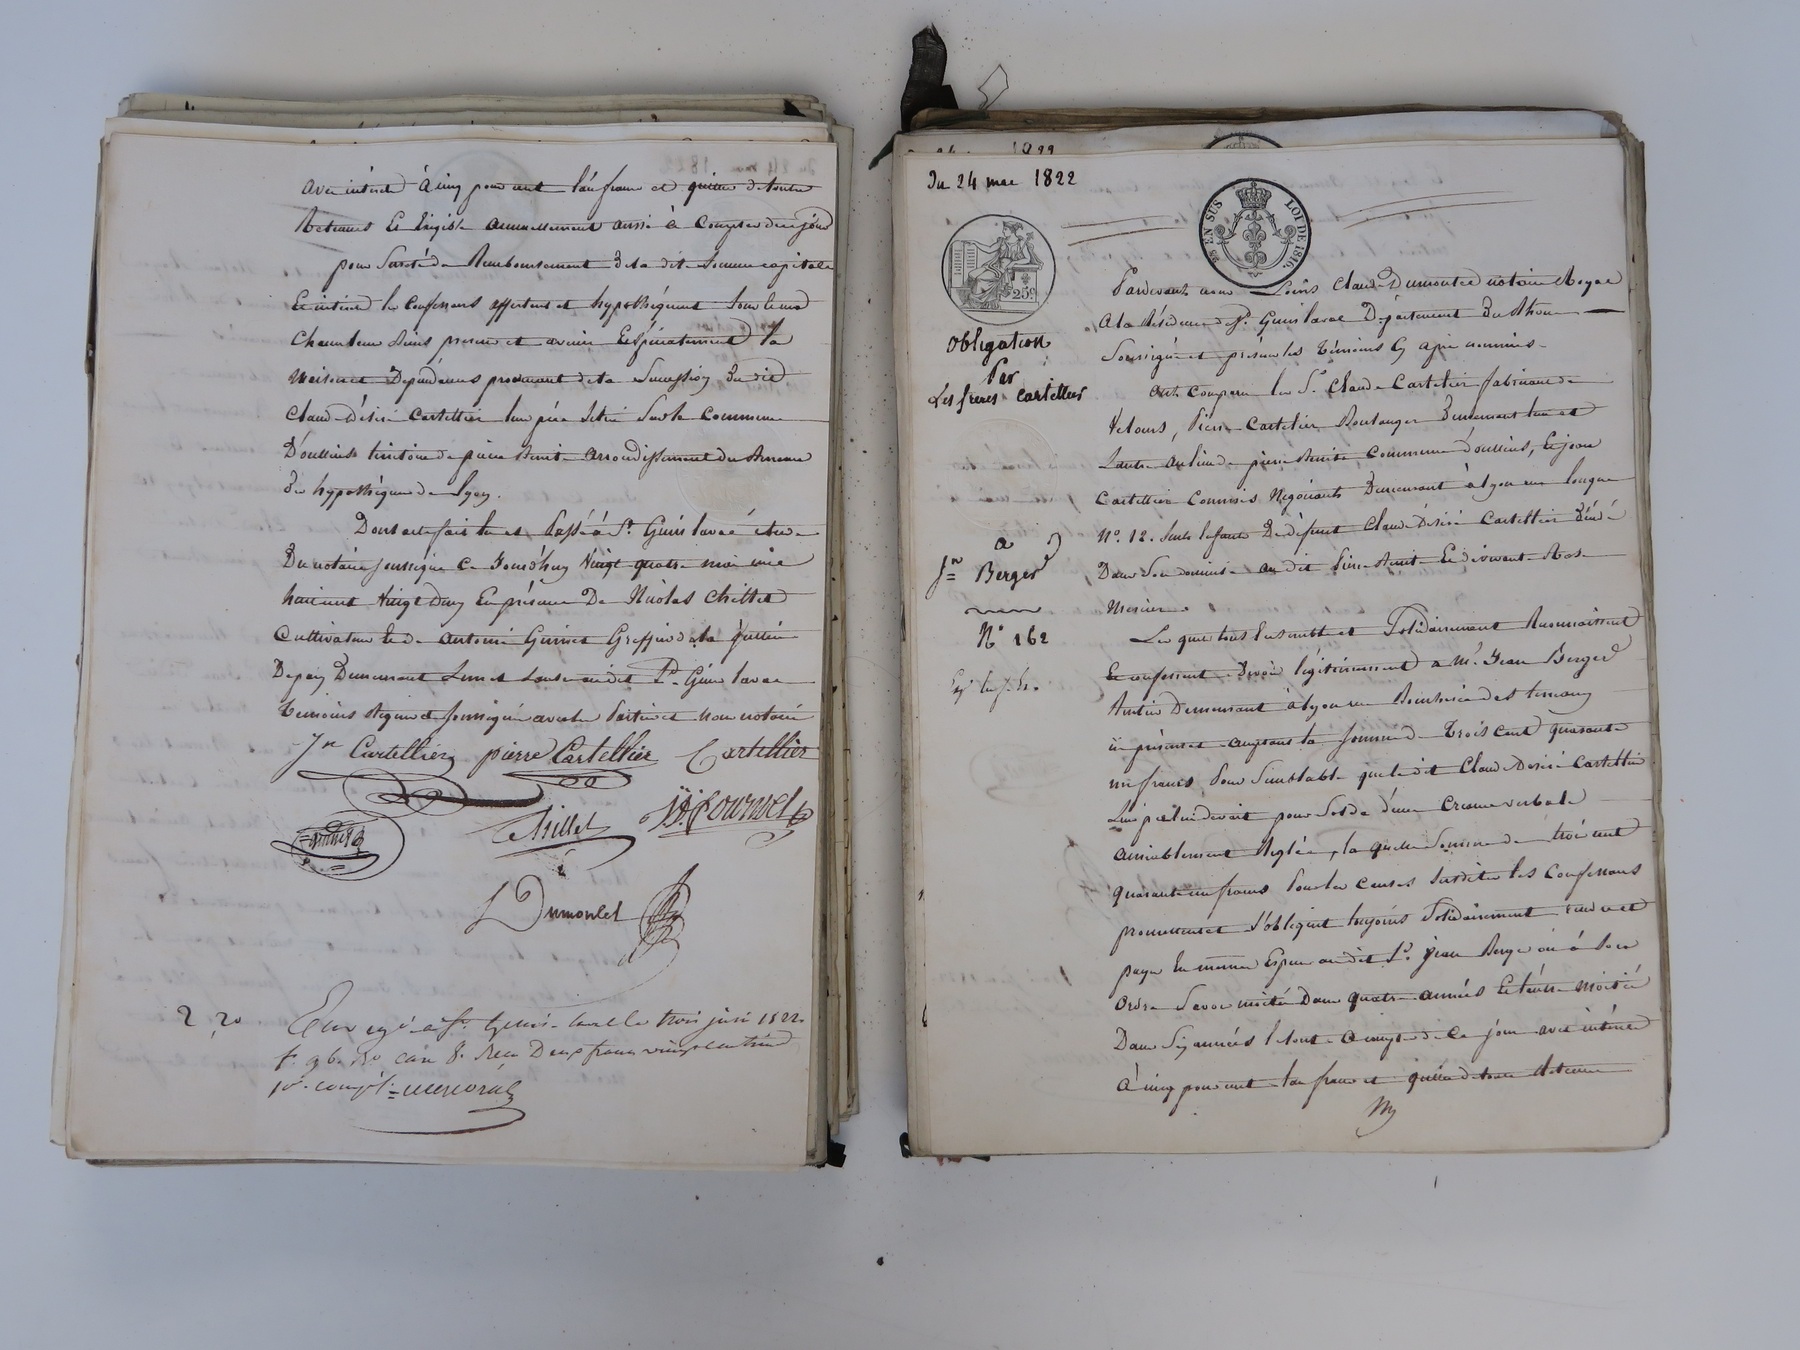 avec intérêt à cinq pour cent l'an franc et quitte de toutes
Retenues et Exigible annuellement aussi à compter de ce jour
pour sureté du Remboursement de la dite somme capitale
Et intérêt les confessans affectent et hypothéquent tous leurs
chacun leurs biens présens et avenir Et spécialement la
maison et Dépendances provenant de la Succession du dit
Claude Désiré Cartellier leur père située sur la commune
D'oullins territoire de pierre Benite arrondissement du Bureau
des hypothèques de Lyon.
Dont acte fait lu et Passé à St. Genis laval étude
Du notaire soussigné ce Jourd'huy Vingt quatre mai mil
huit cent Vingt Deux En présence De Nicolas Chillet
Cultivateur et de antoine Greffier de la justice
De paix Demeurant L'un et L'autre au dit St. Genis laval
témoins Requis et soussignés avec les Parties et nous notaire
Jn Cartellier pierre Cartellier Cartellier
Chillet
Dumoulet
2, 20 Enregé à St. Genis-laval le trois juin 1822.
f. 96. Ro. case 8. Reçu Deux francs vingt centimes
10e. compt.
Du 24 mai 1822
25 EN SUS LOI DE 1816.
25c
Obligation
Par
Les freres Cartellier
a
Jn Berger
No 162
Pardevant nous Louis Claude Dumoulet notaire Royal
A la Résidence de St. Genis laval Département Du Rhône
Soussigné et présens les témoins cy après nommés
Ont Comparu les Srs. Claude Cartelier fabricant de
Velours, Pierre Cartelier Boulanger Demeurant l'un et
L'autre au lieu de pierre Benite commune d'oullins, Et jean
Cartellier Commis Négociant Demeurant à Lyon rue longue
No. 12. seuls enfants De défunt Claude Désiré Cartellier décédé
Dans Son domicile au dit Pierre Benite Et de vivante
Mercier
Les quels tous Ensemble et Solidairement Reconnaissent
Et confessent Devoir légitimement à Mr. Jean Berger
Rentier Demeurant à Lyon rue
ici présent et acceptant la Somme de trois cent quarante
un francs Pour Semblable que le dit Claude Désiré Cartellier
Leur père lui devait pour Solde d'une créance verbale
amiablement Réglée, la quelle Somme de trois cent
quarante un francs Pour les causes susdites les Confessans
promettent et s'obligent toujours Solidairement rendre et
payer En mêmes Espèces au dit Sr. jean Berger ou à Son
Ordre Savoir moitié Dans quatre années Et l'autre moitié
Dans Six années le tout à compter de ce jour avec intérêt
à cinq pour cent l'an franc et quitte de toute Retenue